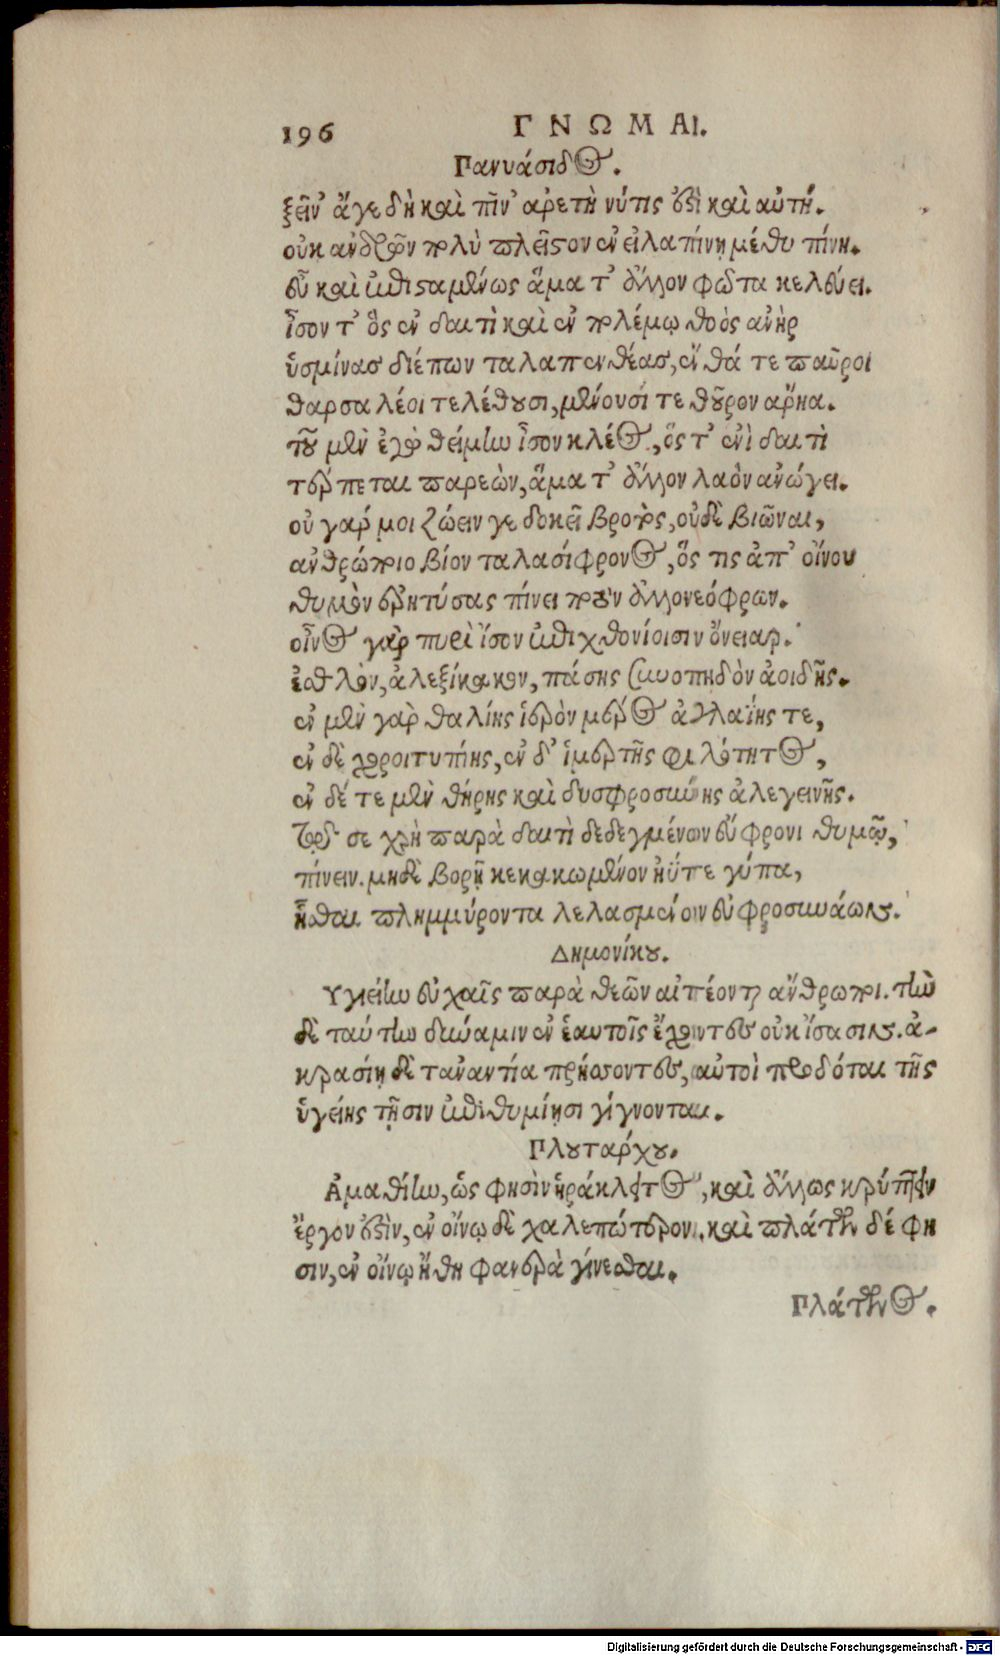 196 ΓΝΩΜΑΙ.
Πανυάσιδος.
ξεῖν' ἄγε δὴ καὶ πῖν' ἀρετὴ νύ τις ἐστὶ καὶ αὐτή.
οὐκ ἀνδρῶν πολὺ πλεῖστον ἐν εἰλαπίνῃ μέθυ πίνῃ.
εὖ καὶ ἐπισταμένως ἅμα τ' ἄλλον φῶτα κελεύει.
ἶσον τ' ὃς ἐν δαιτὶ καὶ ἐν πολέμῳ θοὸς ἀνὴρ
ὑσμίνας διέπων ταλαπενθέας, ἔνθά τε παῦροι
θαρσαλέοι τελέθουσι, μένουσί τε θοῦρον ἄρηα.
τοῦ μὲν ἐγὼ θείμην ἶσον κλέος, ὅς τ' ἐνὶ δαιτὶ
τέρπεται παρεὼν, ἅμα τ' ἄλλον λαὸν ἀνώγει.
οὐ γάρ μοι ζώειν γε δοκεῖ βροτὸς, οὐδὲ βιῶναι,
ἀνθρώποιο βίον ταλασίφρονος, ὅς τις ἀπ' οἴνου
θυμὸν ἐρητύσας πίνει ποτὸν ἄλλο νεόφρων.
οἶνος γὰρ πυρὶ ἴσον ἐπιχθονίοισιν ὄνειαρ.
ἐσθλὸν, ἀλεξίκακον, πάσης συνοπηδὸν ἀοιδῆς.
ἐν μὲν γὰρ θαλίης ἱερὸν μέρος ἀγλαΐης τε,
ἐν δὲ χοροιτυπίης, ἐν δ' ἱμερτῆς φιλότητος,
ἐν δέ τε μὲν θήρης καὶ δυσφροσύνης ἀλεγεινῆς.
τῷ σε χρὴ παρὰ δαιτὶ δεδεγμένον εὔφρονι θυμῷ,
πίνειν. μηδὲ βορῇ κεκακωμένον ἠΰτε γύπα,
ἧσθαι πλημμύροντα λελασμένον εὐφροσυνάων.
Δημονίκου.
Υγιείην εὐχαῖς παρὰ θεῶν αἰτέονται ἄνθρωποι. τὴν
δὲ ταύτην δύναμιν ἐν ἑαυτοῖς ἔχοντες οὐκ ἴσασιν. ἀ-
κρασίῃ δὲ τἀναντία πρήσσοντες, αὐτοὶ προδόται τῆς
ὑγείης τῇσιν ἐπιθυμίῃσι γίγνονται.
Πλουτάρχου.
Αμαθίην, ὥς φησὶν ἡράκλειτος, καὶ ἄλλως κρύπτειν
ἔργον ἐστὶν, ἐν οἴνῳ δὲ χαλεπώτερον. καὶ πλάτων δέ φη
σιν, ἐν οἴνῳ ἤθη φανερὰ γίνεσθαι.
Πλάτωνος.
Digitalisierung gefördert durch die Deutsche Forschungsgemeinschaft - DFG